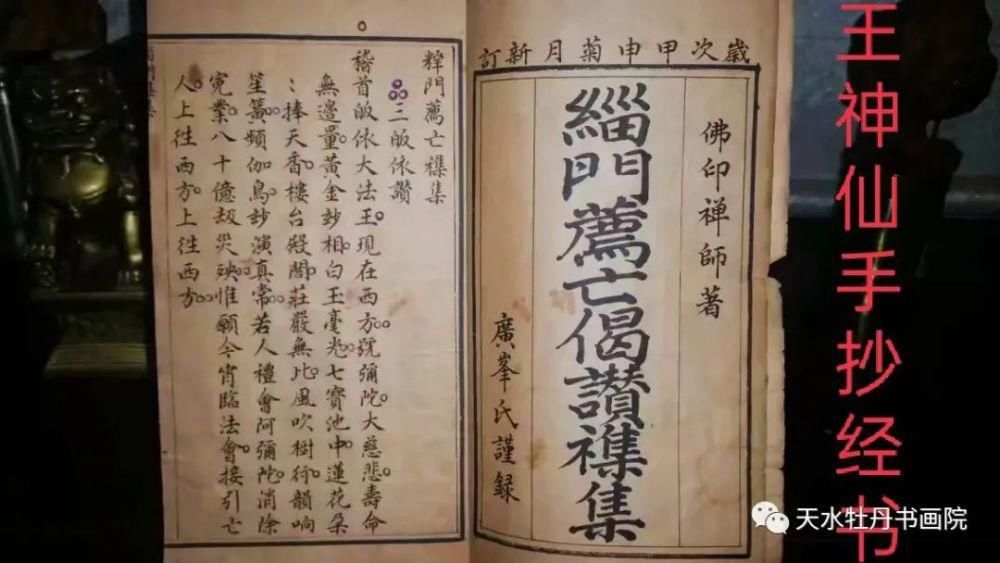 王神仙手抄经书
歲次甲申菊月新訂
佛印禅師著
緇門薦亡偈讃襍集
廣峯氏謹録
釋門薦亡襍集
三皈依讃
稽首皈依大法王。現在西方。號彌陀大慈悲壽命
無邊量黃金玅相白玉毫光七寶池中蓮花朵
：捧天香。樓台殿閣莊嚴無比。風吹樹行。韻响
笙簧。頻伽鳥。玅演真常。若人禮會阿彌陀。消除
寃業。八十億劫災殃。惟願今宵臨法會。接引亡
人。上徃西方。上徃西方。
天水牡丹书画院